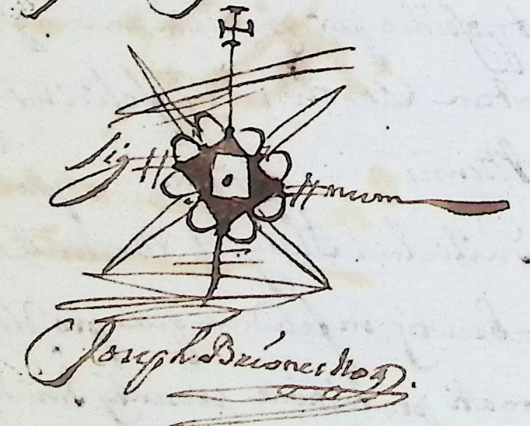 Sig##num
Joseph Briones Not.